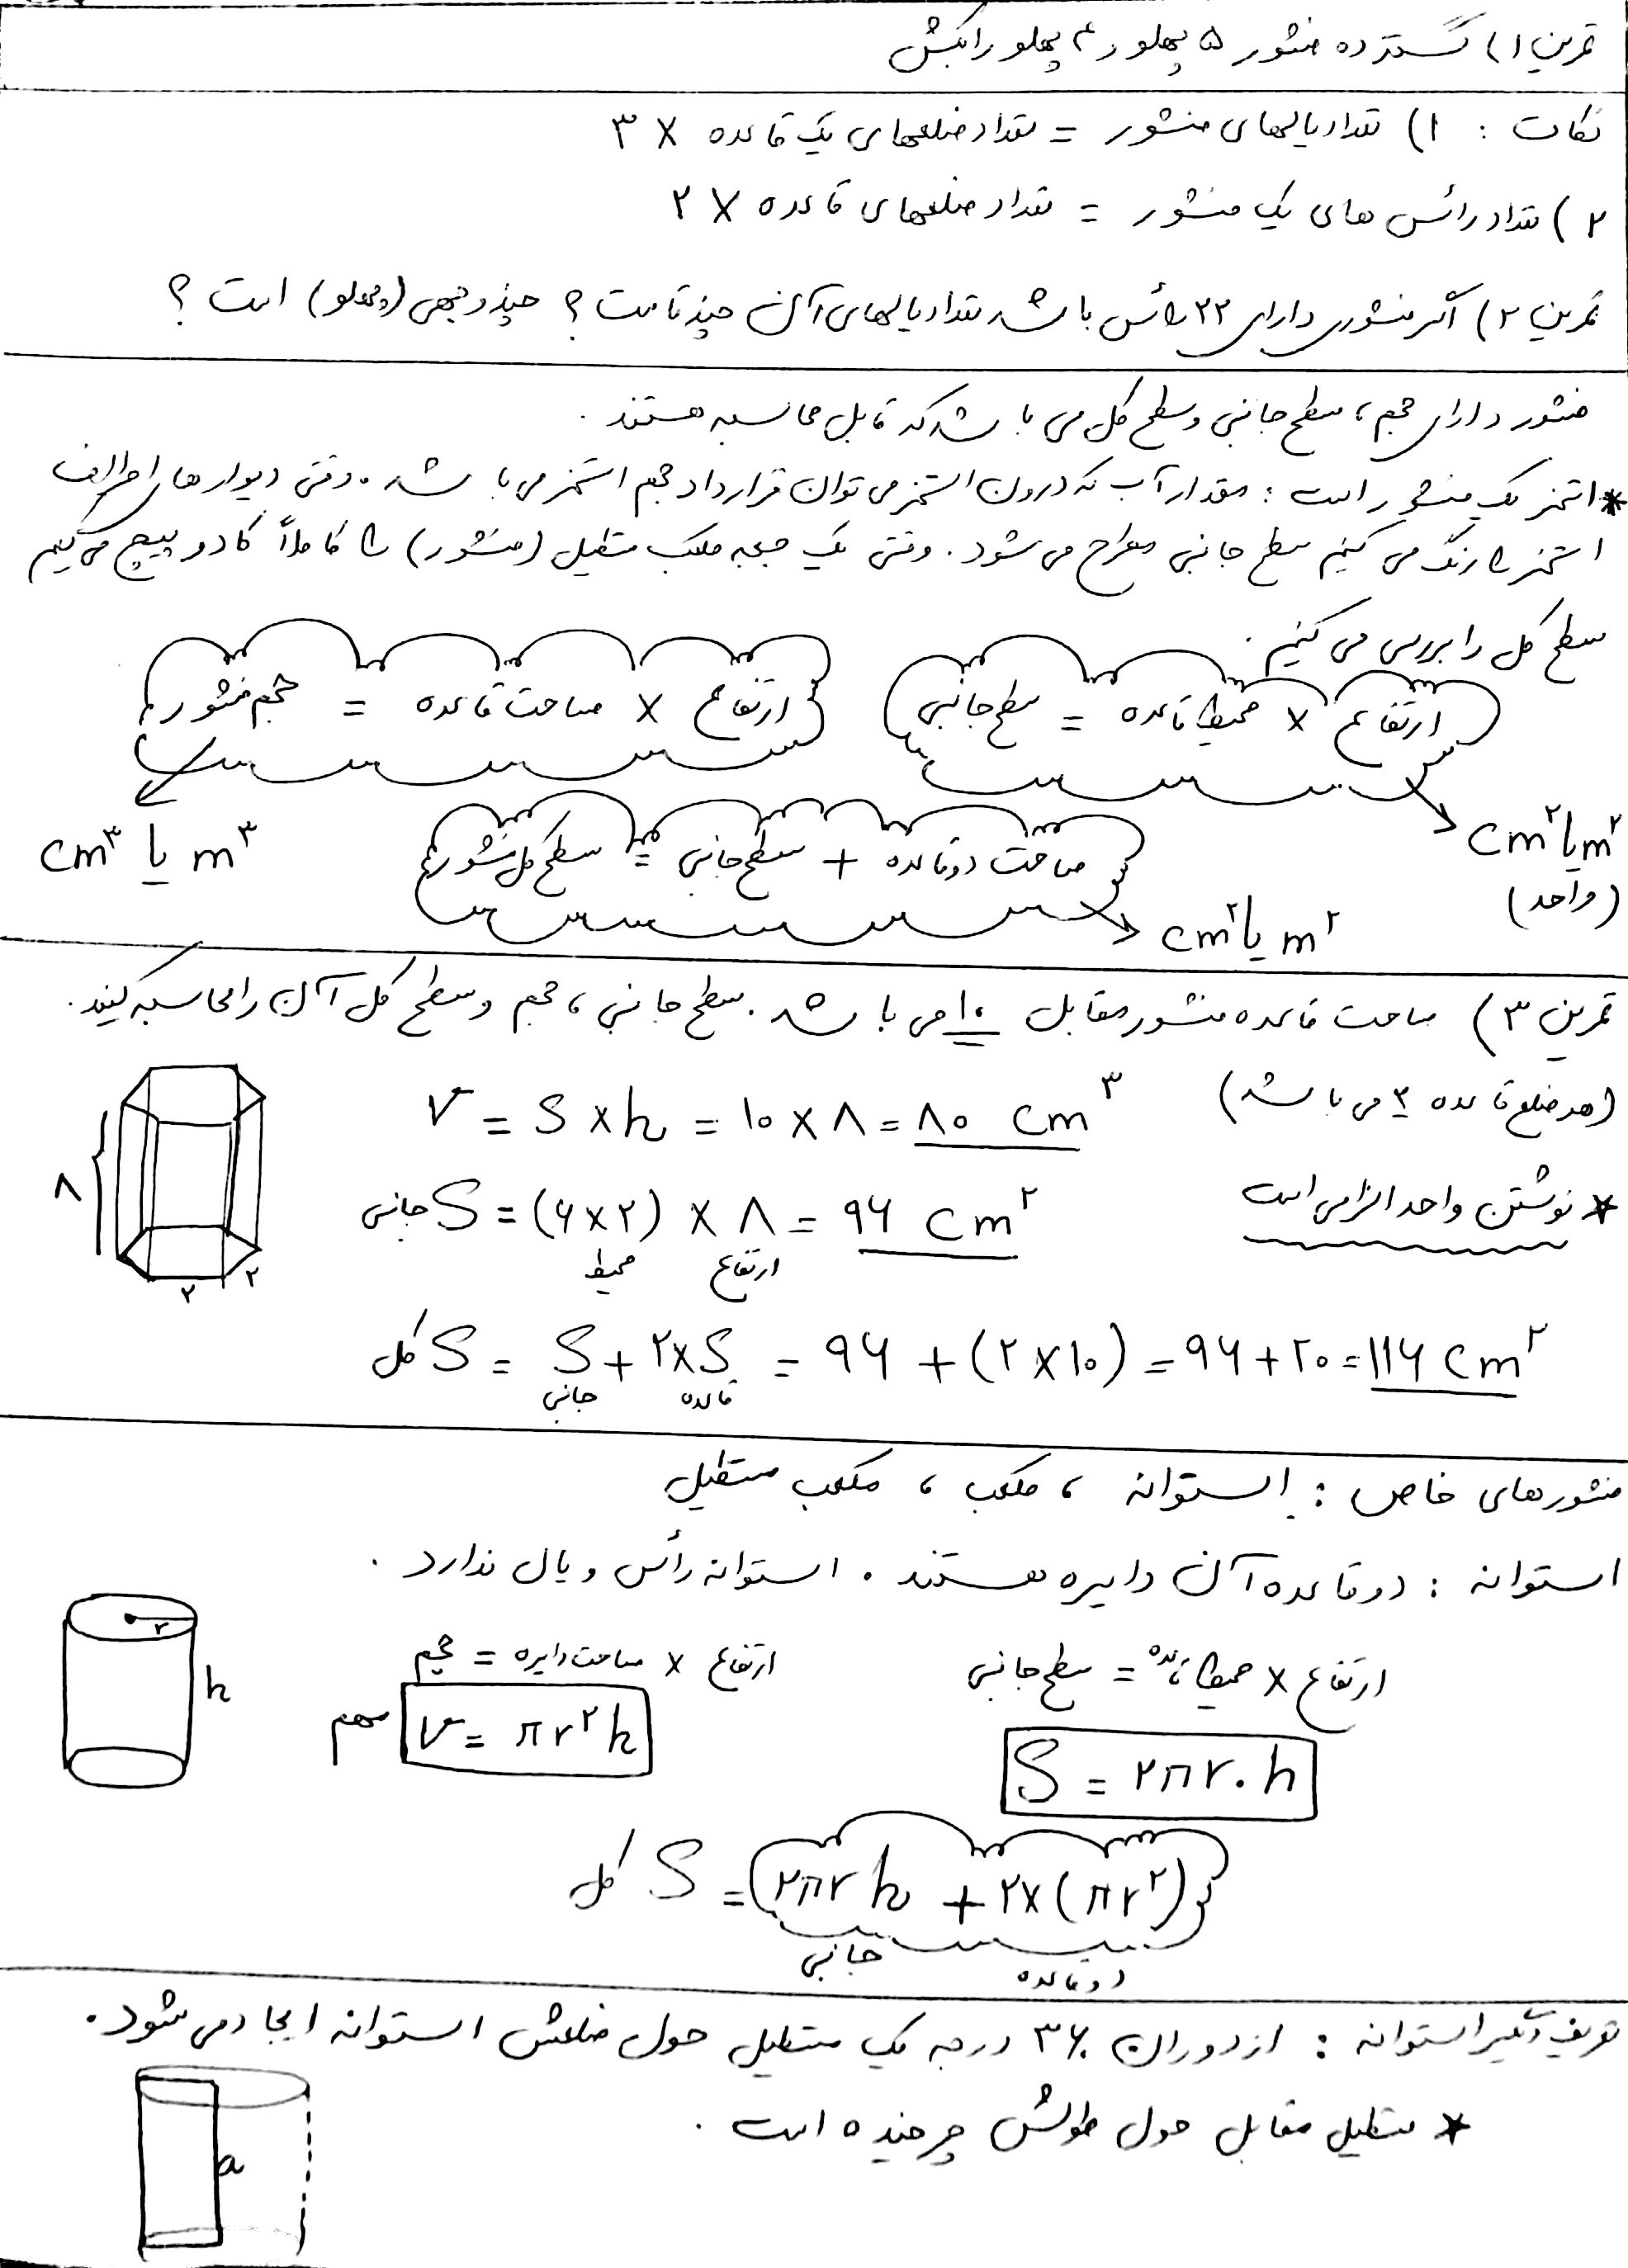 تمرین ۱) گسترده منشور ۵ پهلو و ۴ پهلو را بکش
نکات : ۱) تعداد یالهای منشور = تعداد ضلعهای یک قاعده × ۳
۲) تعداد رائس های یک منشور = تعداد ضلعهای قاعده × ۲
تمرین ۲) اگر منشوری دارای ۲۲ رائس باشد تعداد یالهای آن چند تا ست؟ چند وجهی (پهلو) است؟
منشور دارای حجم، سطح جانبی و سطح کل می باشد که قابل محاسبه هستند.
* استخر یک منشور است : مقدار آب که درون استخر می توان قرار داد حجم استخر می باشد. وقتی دیوار های اطراف
استخر را رنگ می کنیم سطح جانبی مطرح می شود. وقتی یک جعبه مکعب مستطیل (منشور) را کاملاً کادو پیچ می کنیم
سطح کل را بررسی می کنیم.
ارتفاع × محیط قاعده = سطح جانبی
ارتفاع × مساحت قاعده = حجم منشور
cm² یا m²
(واحد)
cm³ یا m³
مساحت دو قاعده + سطح جانبی = سطح کل منشور
cm² یا m²
تمرین ۳) مساحت قاعده منشور مقابل ۱۰ می باشد. سطح جانبی، حجم و سطح کل آن را محاسبه کنید.
(هر ضلع قاعده ۲ می باشد)
V = S × h = ۱۰ × ۸ = ۸۰ cm³
* نوشتن واحد الزامی است
S جانبی = (۶×۲) × ۸ = ۹۶ cm²
محیط ارتفاع
۸
۲ ۲
S کل = S + ۲×S = ۹۶ + (۲×۱۰) = ۹۶+۲۰ = ۱۱۶ cm²
جانبی قاعده
منشورهای خاص : استوانه ، مکعب ، مکعب مستطیل
استوانه : دو قاعده آن دایره هستند. استوانه رأس و یال ندارد.
ارتفاع × محیط قاعده = سطح جانبی
ارتفاع × مساحت دایره = حجم
r
h
S = ۲πr.h
مهم V = πr²h
S کل = ۲πrh + ۲×(πr²)
جانبی دو قاعده
تعریف دیگر استوانه : از دوران ۳۶۰ درجه یک مستطیل حول ضلعش استوانه ایجاد می شود.
* مستطیل مقابل حول طولش چرخیده است.
a